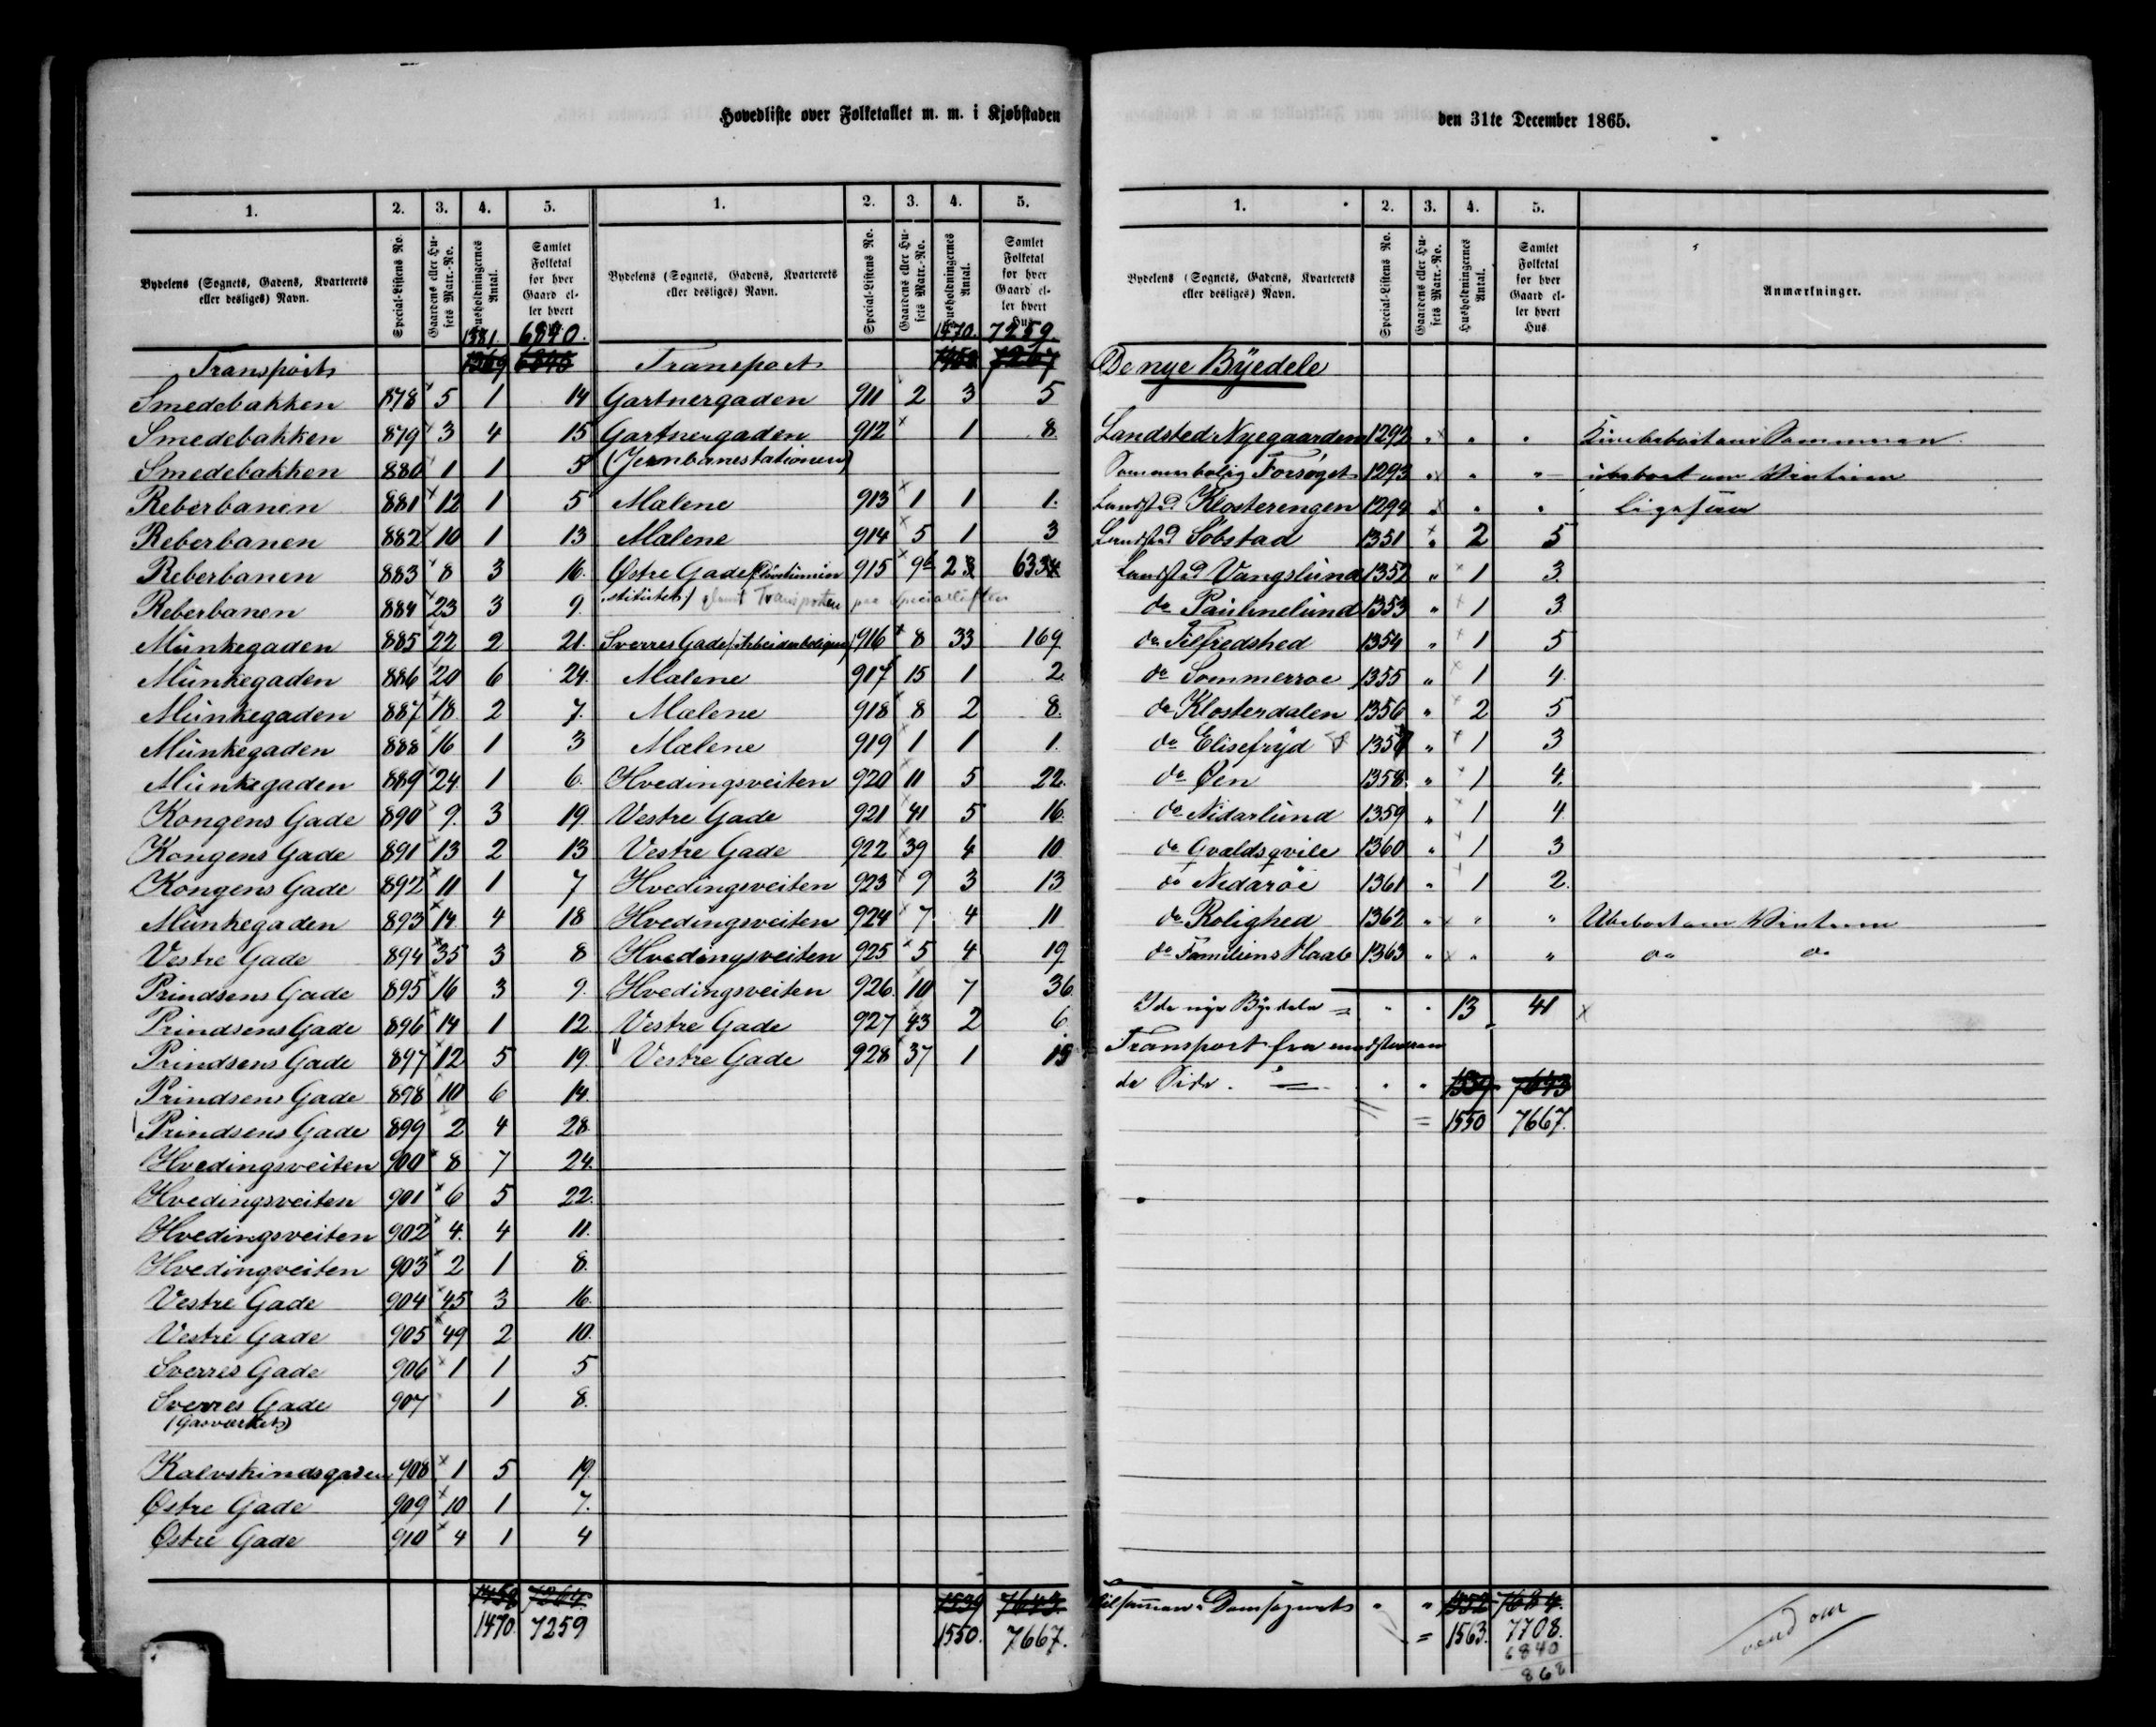 Hovedliste over Folketallet m. m. i Kjøbstaden
1. 2. 3. 4. 5.
Bydelens (Sognets, Gadens, Kvarterets eller desliges) Navn. Special-Listens No. Gaardens eller Husets Matr.-No. Husholdningernes Antal. Samlet Folketal for hver Gaard eller hvert
1381. 6840.
Transport
Smedebakken 878 5 1 14
Smedebakken 879 3 4 15
Smedebakken 880 1 1 5
Reberbanen 881 12 1 5
Reberbanen 882 10 1 13
Reberbanen 883 8 3 16.
Reberbanen 884 23 3 9.
Munkegaden 885 22 2 21.
Munkegaden 886 20 6 24.
Munkegaden 887 18 2 7.
Munkegaden 888 16 1 3
Munkegaden 889 24. 1 6.
Kongens Gade 890 9. 3 19
Kongens Gade 891 13 2 13
Kongens Gade 892 11 1 7
Munkegaden 893 14. 4 18
Vestre Gade 894 35 3 8
Prindsens Gade 895 16 3 9.
Prindsens Gade 896 14 1 12
Prindsens Gade 897 12 5 19.
Prindsens Gade 898 10 6 14.
Prindsens Gade 899 2 4 28
Hvedingsveiten 900 8 7 24.
Hvedingsveiten 901 6 5 22.
Hvedingsveiten 902 4. 4 11.
Hvedingveiten 903 2 1 8.
Vestre Gade 904 45 3 16.
Vestre Gade 905 49 2 10.
Sverres Gade 906 1 1 5
Sverres Gade 907 1 8.
(Gasværket)
Kalvskindsgaden 908 1 5 19.
Østre Gade 909 10 1 7.
Østre Gade 910 4 1 4
1459 7264.
1470. 7259
1. 2. 3. 4. 5.
Bydelens (Sognets, Gadens, Kvarterets eller desliges) Navn. Special-Listens No. Gaardens eller Husets Matr.-No. Husholdningernes Antal. Samlet Folketal for hver Gaard eller hvert Hus
1470. 7259.
Transport
Gartnergaden 911 2 3 5
Gartnergaden 912 1 8.
(Jernbanestationen)
Malene 913 1 1 1.
Malene 914 5 1 3
Østre Gade 915 9
Sverres Gade (Arbeiderboligen) 916 8 33 169
Malene 917 15 1 2.
Malene 918 8 2 8.
Malene 919 1 1 1.
Hvedingsveiten 920 11 5 22.
Vestre Gade 921 41 5 16.
Vestre Gade 922 39 4 10
Hvedingsveiten 923 9 3 13
Hvedingsveiten 924 7 4 11
Hvedingsveiten 925 5 4 19
Hvedingsveiten 926. 10 7 36.
Vestre Gade 927 43 2 6
" Vestre Gade 928 37 1 15
1539 7643.
1550. 7667.
den 31te December 1865.
1. 2. 3. 4. 5.
Bydelens (Sognets, Gadens, Kvarterets eller desliges) Navn. Special-Listens No. Gaardens eller Husets Matr.-No. Husholdningernes Antal. Samlet Folketal for hver Gaard eller hvert Hus Anmærkninger.
De nye Byedele
Landsted Nyegaarden 1292 " " " Sommeren
Sommerbolig Forsøget 1293 " " " ubeboet om Vinteren
Landsted Klosterengen 1294 " " " ligesaa
Landsted Søbstad 1351 " 2 5
Landsted Vangslund 1352 " 1 3
do Paulinelund 1353 " 1 3
do Filfredshed 1354 " 1 5
do Sommerroe 1355 " 1 4.
do Klosterdalen 1356 " 2 5
do Elisefryd 1357 " 1 3
do Øen 1358. " 1 4.
do Nidarlund 1359 " 1 4
do Gvaldsqvile 1360 " 1 3
do Nidarøe 1361 " 1 2.
do Rolighed 1362 " " " Ubeboet om Vinteren
do Familiens Haab 1363 " " " do do
I de nye Bydele = " " 13 41
Transport fra
de Side. = " " 1539 7643
= 1550 7667.
Tilsammen Domsognet " " 1552 7684.
= 1563. 7708.
6840
868
vend om